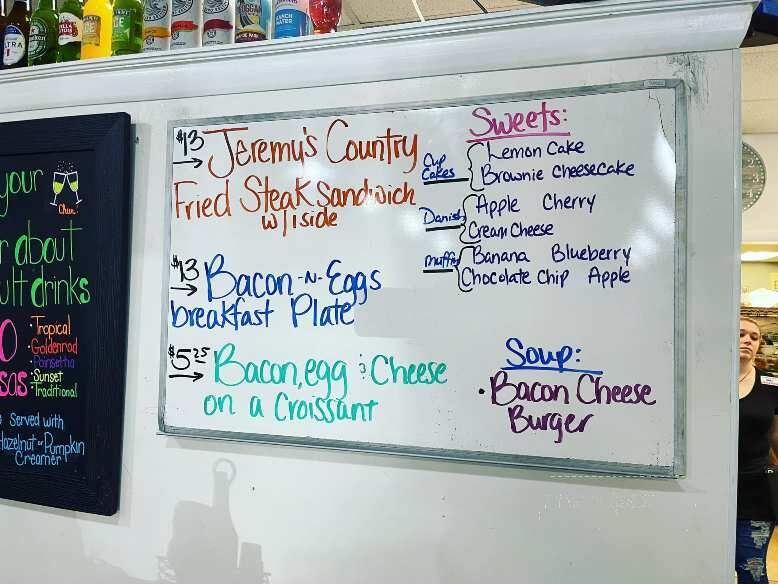 your
Cheers
r about
ult drinks
Tropical
Goldenrod
Poinsettia
Sunset
Traditional
sas
Served with
Hazelnut or Pumpkin
Creamer
$13 Jeremy's Country
Fried Steak Sandwich
w/1 side
$13 Bacon-N-Eggs
breakfast Plate
$5.25 Bacon, egg & Cheese
on a Croissant
Sweets:
Cup
Cakes
Lemon Cake
Brownie Cheesecake
Danish
Apple Cherry
Cream Cheese
Muffin
Banana Blueberry
Chocolate Chip Apple
Soup:
• Bacon Cheese
Burger